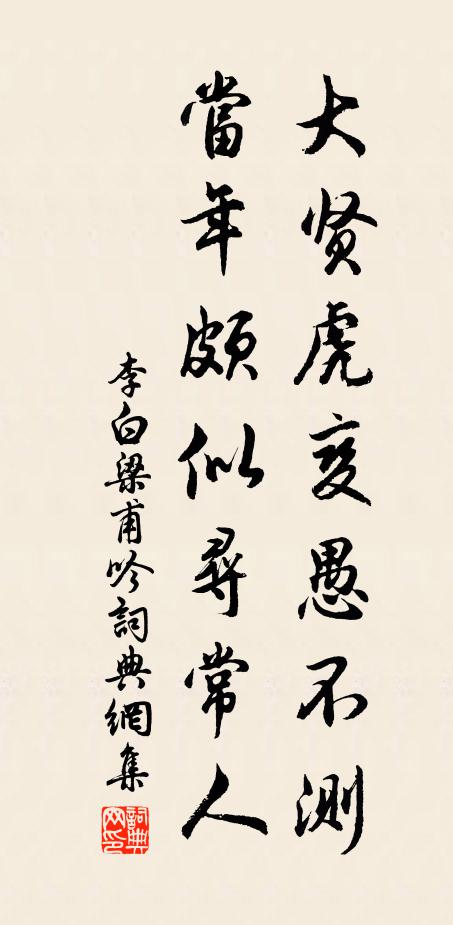 大贤虎变愚不测
當年頗似尋常人
李白梁甫吟詞典網集
詞典
网印